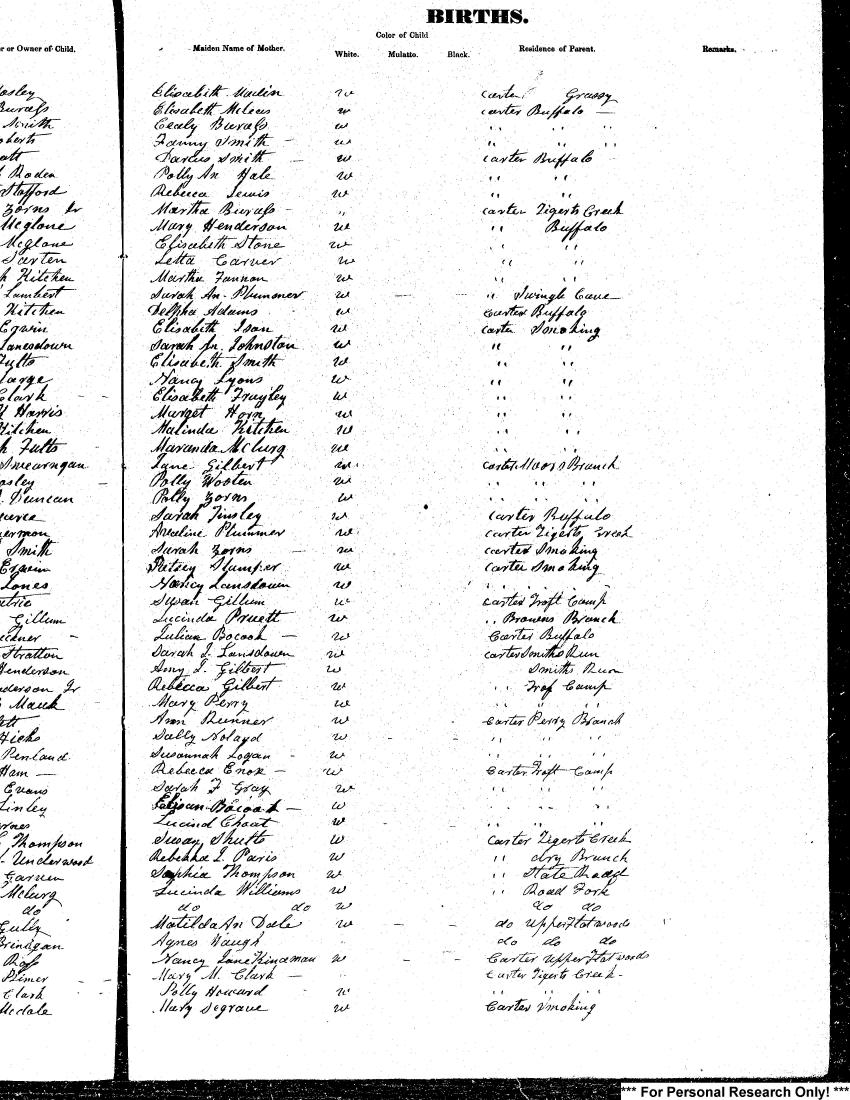 BIRTHS.
Color of Child
r or Owner of Child. Maiden Name of Mother. White. Mulatto. Black. Residence of Parent. Remarks.
osley Elisabeth w Carter Grassy
Burass Elisabeth w Carter Buffalo —
Smith Cealy Burass w " " "
oberts Fanny Smith — w " " "
att Darcus Smith — w Carter Buffalo
Roden Polly An Hale w " "
Stafford Rebecca Lewis w " "
Zorns Sr Martha Burass - " Carter Tigerts Creek
McGlone Mary Henderson w " Buffalo
McGlone Elisabeth Stone w " "
Sarten Letta Carver w " "
h Kitchen Martha Fannon w " "
Lambert Sarah An. Plummer w — - " Swingle Cave
Kitchen Delpha Adams w Carter Buffalo
Erwin Elisabeth Ison w Carter Smoking
Lansdown Sarah An. Johnston w " "
Fults Elisabeth Smith w " "
large Nancy Lyons w " "
Clark - Elisabeth Frayley w " "
Harris Marget Horn w " "
Kitchen Malinda Kitchen w " "
h Fults - Maranda McLurg w " "
Swearngan Jane Gilbert w Carter Moors Branch
osley Polly Wooten w " " "
Duncan Polly Zorns w " " "
Sarah Tinsley w Carter Buffalo
ermon Aveline Plummer w Carter Tigerts Creek
Smith Sarah Zorns — w Carter Smoking
Erwin Patsey Stamper w Carter Smoking
Jones Nancy Lansdown w " " "
Susan Gillum w Carter Troft Camp
Gillum Lucinda Pruett w " Browns Branch
eckner - Julian Bocook — w Carter Buffalo
Stratton Sarah J. Lansdown w Carter Smiths Run
Henderson Amy J. Gilbert w Smiths Run
nderson Jr Rebecca Gilbert w " Trof Camp
Mauk Mary Perry w " " "
ett Ann Runner w Carter Perry Branch
Hicks Sally Noland w " " "
Penland Susannah Logan - w " " "
Ham — Rebecca Enox — w Carter Troft Camp
Evans Sarah F Gray w " "
Linley Bocook — w " " "
arnes Lucind Choat w " " "
Thompson Susan Shutts w Carter Tigerts Creek
Underwood Rebekka J. Paris w " dry Branch
Carver Sophia Thompson w " State Road
McLurg Lucinda Williams w " Road Fork
do do do w do do
Gully Matilda An Dale w - - do Upper Flat woods
Brinigan Agnes Waugh " do do do
Ross Nancy Jane Kindeman w - - Carter Upper Flat woods
Plimer Mary M. Clark — " Carter Tigerts Creek -
Clark Polly Howard w " " "
McDale Mary Segrave w Carter Smoking
*** For Personal Research Only! ***